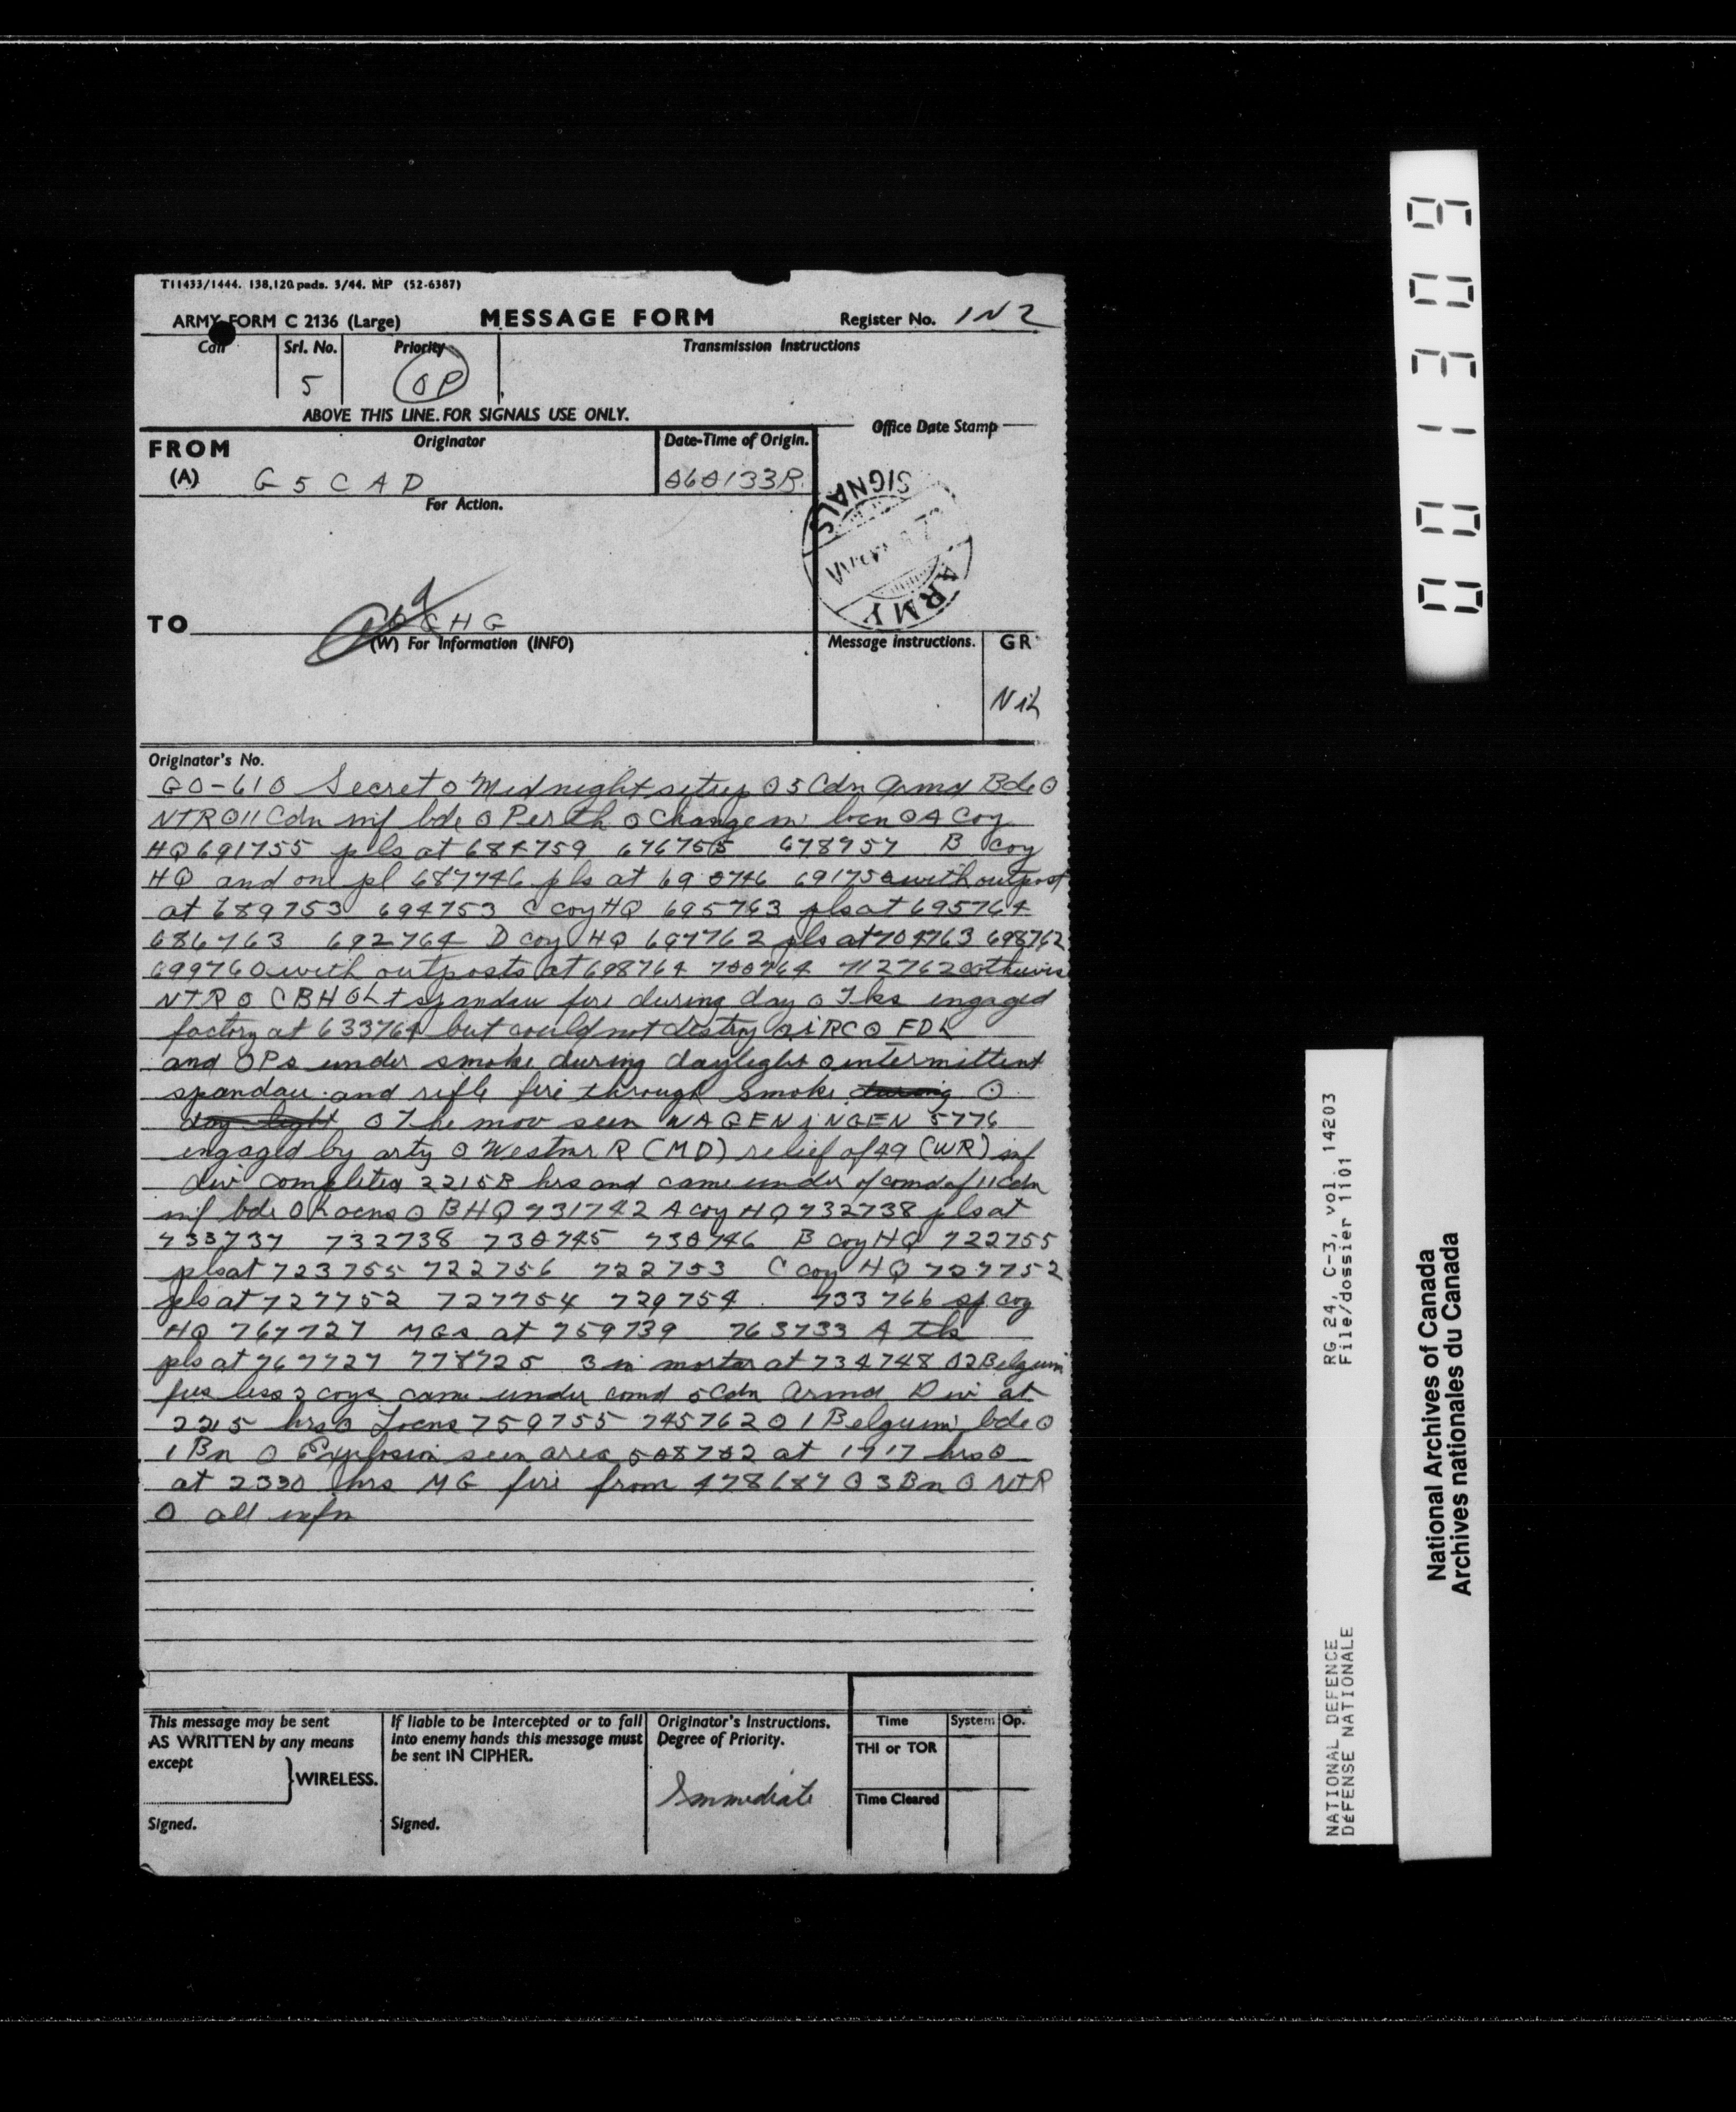 T11433/1444. 138,120 pads. 3/44. MP (52-6387)
ARMY FORM C 2136 (Large) MESSAGE FORM Register No. IN 2
Call Srl. No. Priority Transmission Instructions
5 OP
ABOVE THIS LINE FOR SIGNALS USE ONLY.
FROM Originator Date-Time of Origin. Office Date Stamp
(A) G 5 C A D 060133B
For Action.
ARMY SIGNALS
TO
(W) For Information (INFO) Message Instructions. GR
Nil
Originator's No.
GO-610 Secret o Midnight sitrep o 5 Cdn Armd Bde o
NTR o 11 Cdn inf bde o Perth o Change in locn o A Coy
HQ 691755 pls at 684759 676755 678757 B coy
HQ and one pl 687746 pls at 690746 691750 with outpost
at 689753 694753 C coy HQ 695763 pls at 695764
686763 692764 D coy HQ 697762 pls at 704763 698762
699760 with outposts at 698764 700764 712762 o otherwise
NTR o CBH o Lt spandau fire during day o Tks engaged
factory at 633764 but could not destroy o iRC o FDL
and OPs under smoke during daylight o intermittent
spandau and rifle fire through smoke during o
day light o The mov seen WAGENINGEN 5776
engaged by arty o Westmr R (MD) relief of 49 (WR) inf
div completed 2215B hrs and came under of comd of 11 Cdn
inf bde o Locns o BHQ 731742 A coy HQ 732738 pls at
733737 732738 730745 730746 B coy HQ 722755
pls at 723755 722756 722753 C coy HQ 727752
pls at 727752 727754 729754 733766 sp coy
HQ 767727 MGs at 759739 763733 A tk
pls at 767727 778725 3 in mortar at 734748 o 2 Belgium
fus less 2 coys came under comd 5 Cdn Armd Div at
2215 hrs o Locns 759755 745762 o 1 Belgium bde o
1 Bn o Explosion seen area 508702 at 1717 hrs o
at 2330 hrs MG fire from 478687 o 3 Bn o NTR
o all infm
This message may be sent AS WRITTEN by any means except } WIRELESS.
If liable to be intercepted or to fall into enemy hands this message must be sent IN CIPHER.
Originator's Instructions. Degree of Priority.
Immediate
Time System Op.
THI or TOR
Time Cleared
Signed. Signed.
001309
RG 24, C-3, vol. 14203
File/dossier 1101
NATIONAL DEFENCE
DÉFENSE NATIONALE
National Archives of Canada
Archives nationales du Canada